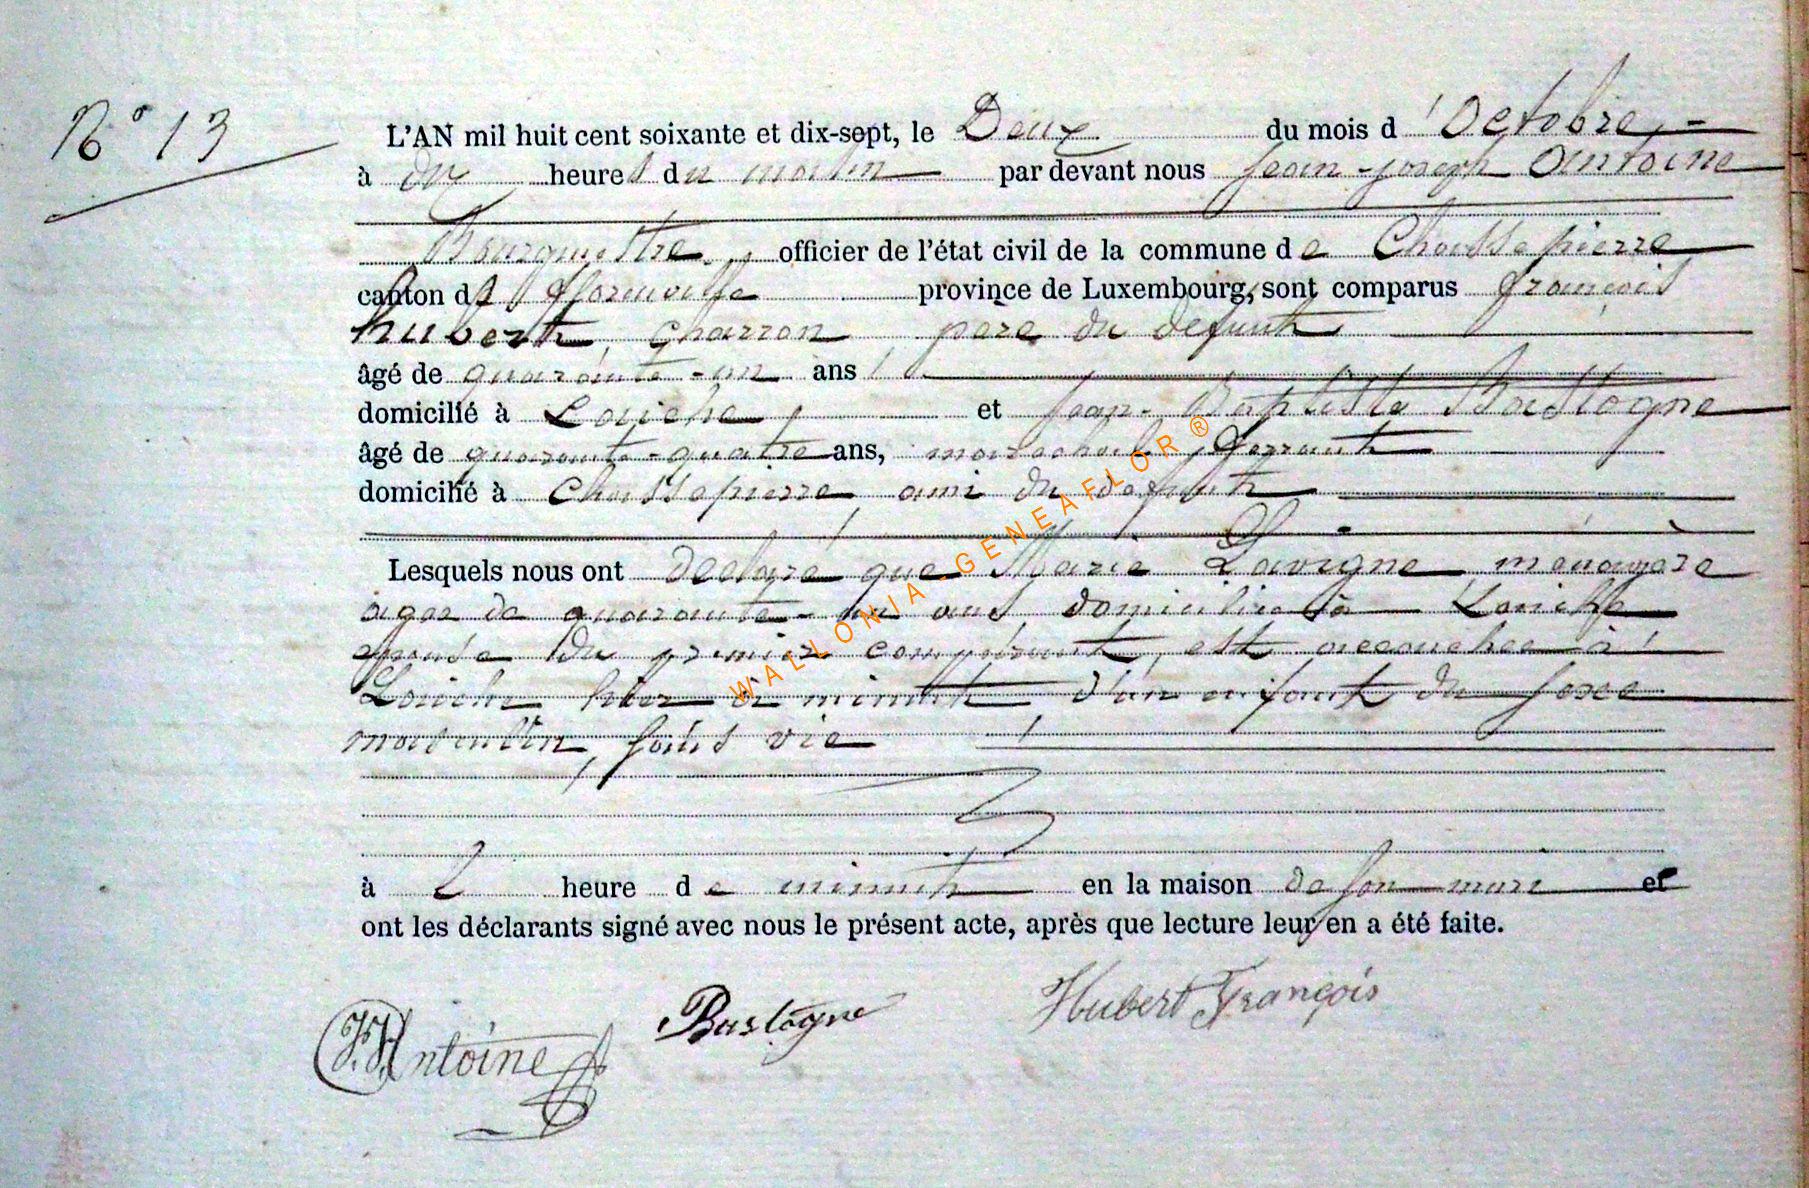 N° 13
L'AN mil huit cent soixante et dix-sept, le Deux du mois d'Octobre
à dix heures du matin par devant nous Jean-Joseph Antoine
Bourgmestre officier de l'état civil de la commune de Chassepierre
canton de Florenville province de Luxembourg, sont comparus François
hubert, charron père du defunt
âgé de quarante-un ans
domicilié à Laiche, et Jean-Baptiste Bastogne
âgé de quarante-quatre ans, marechal ferrant
domicilié à Chassepierre ami du defunt
Lesquels nous ont déclaré que Marie Lavigne, ménagère
agee de quarante-un ans domiciliée à Laiche
epouse du premier comparant, est accouchee à
Laiche hier à minuit d'un enfant du sexe
masculin, sans vie
à heure de minuit en la maison de son mari et
ont les déclarants signé avec nous le présent acte, après que lecture leur en a été faite.
J.J. Antoine Bastogne Hubert François
WALLONIA-GENEAFLOR ®